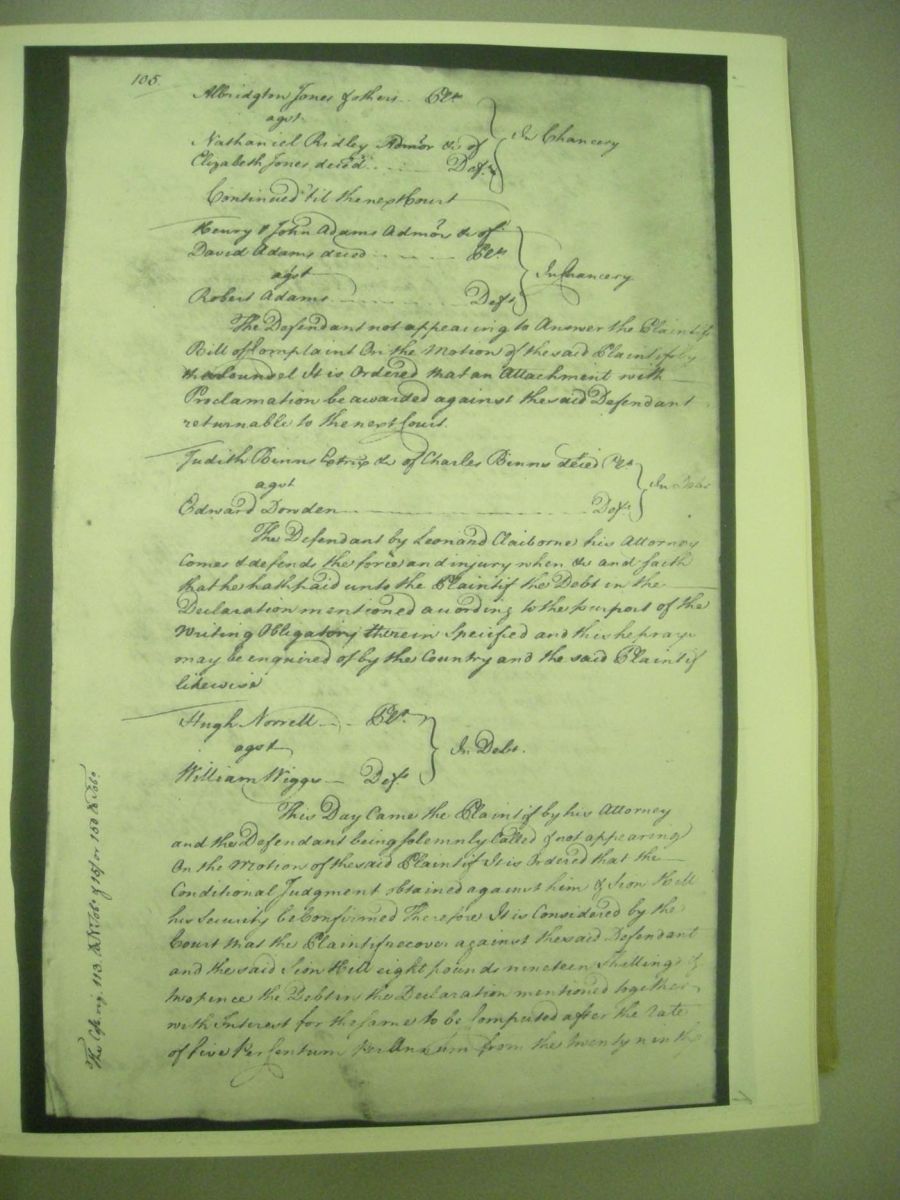 105.
Albridgton Jones & others .. Plts
agst
Nathaniel Ridley Admor &c of
Elizabeth Jones deced .. Deft
In Chancery
Continued 'til the next Court
Henry & John Adams Admors &c of
David Adams deced ..... Plts
agst
Robert Adams ..... Deft
In Chancery
The Defendant not appearing to Answer the Plaintifs
Bill of Complaint On the Motion of the said Plaintifs by
Counsel It is Ordered that an Attachment with
Proclamation be awarded against the said Defendant
returnable to the next Court.
Judith Binns Extrix &c of Charles Binns deced Plt
agst
Edward Dowden ..... Deft
In Debt
The Defendant by Leonard Claiborne his Attorney
Comes & defends the force and injury when &c and saith
that he hath paid unto the Plaintif the Debt in the
Declaration mentioned according to the purport of the
Writing Obligatory therein Specified and this he prays
may be enquired of by the Country and the said Plaintif
likewise
Hugh Norrell .. Plt.
agst
William Wiggs — Deft
In Debt.
This Day Came the Plaintif by his Attorney
and the Defendant being Solemnly Called & not appearing
On the Motion of the said Plaintif It is Ordered that the
Conditional Judgment obtained against him & Sion Hill
his Security be Confirmed Therefore It is Considered by the
Court that the Plaintif recover against the said Defendant
and the said Sion Hill eight pounds nineteen Shillings &
twopence the Debt in the Declaration mentioned together
with Interest for the same to be Computed after the rate
of five Per Centum Per Annum from the twenty ninth
113 15/ or 150